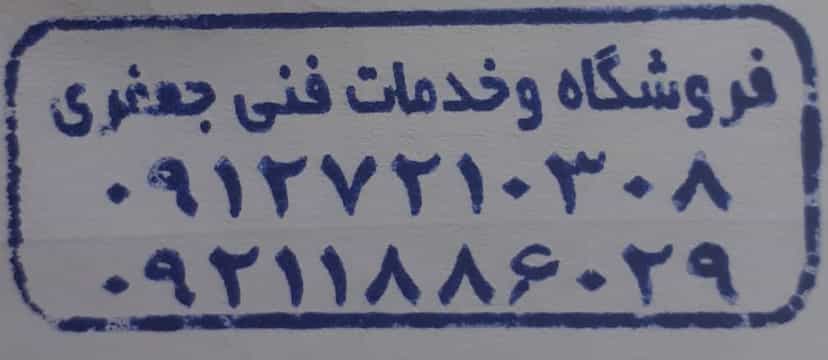 فروشگاه و خدمات فنی جعفری
۰۹۱۲۷۲۱۰۳۰۸
۰۹۲۱۱۸۸۶۰۲۹